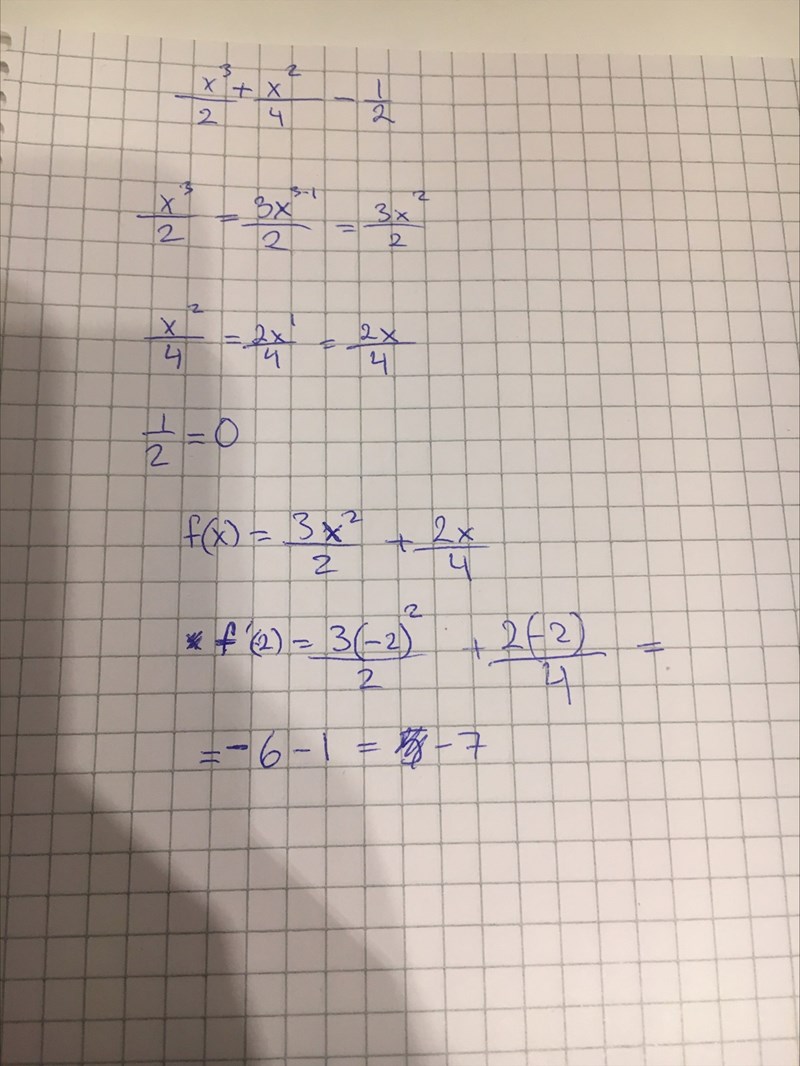 x³/2 + x²/4 - 1/2
x³/2 = 3x³⁻¹/2 = 3x²/2
x²/4 = 2x¹/4 = 2x/4
1/2 = 0
f(x) = 3x²/2 + 2x/4
f'(2) = 3(-2)²/2 + 2(-2)/4 =
= -6 - 1 = -7